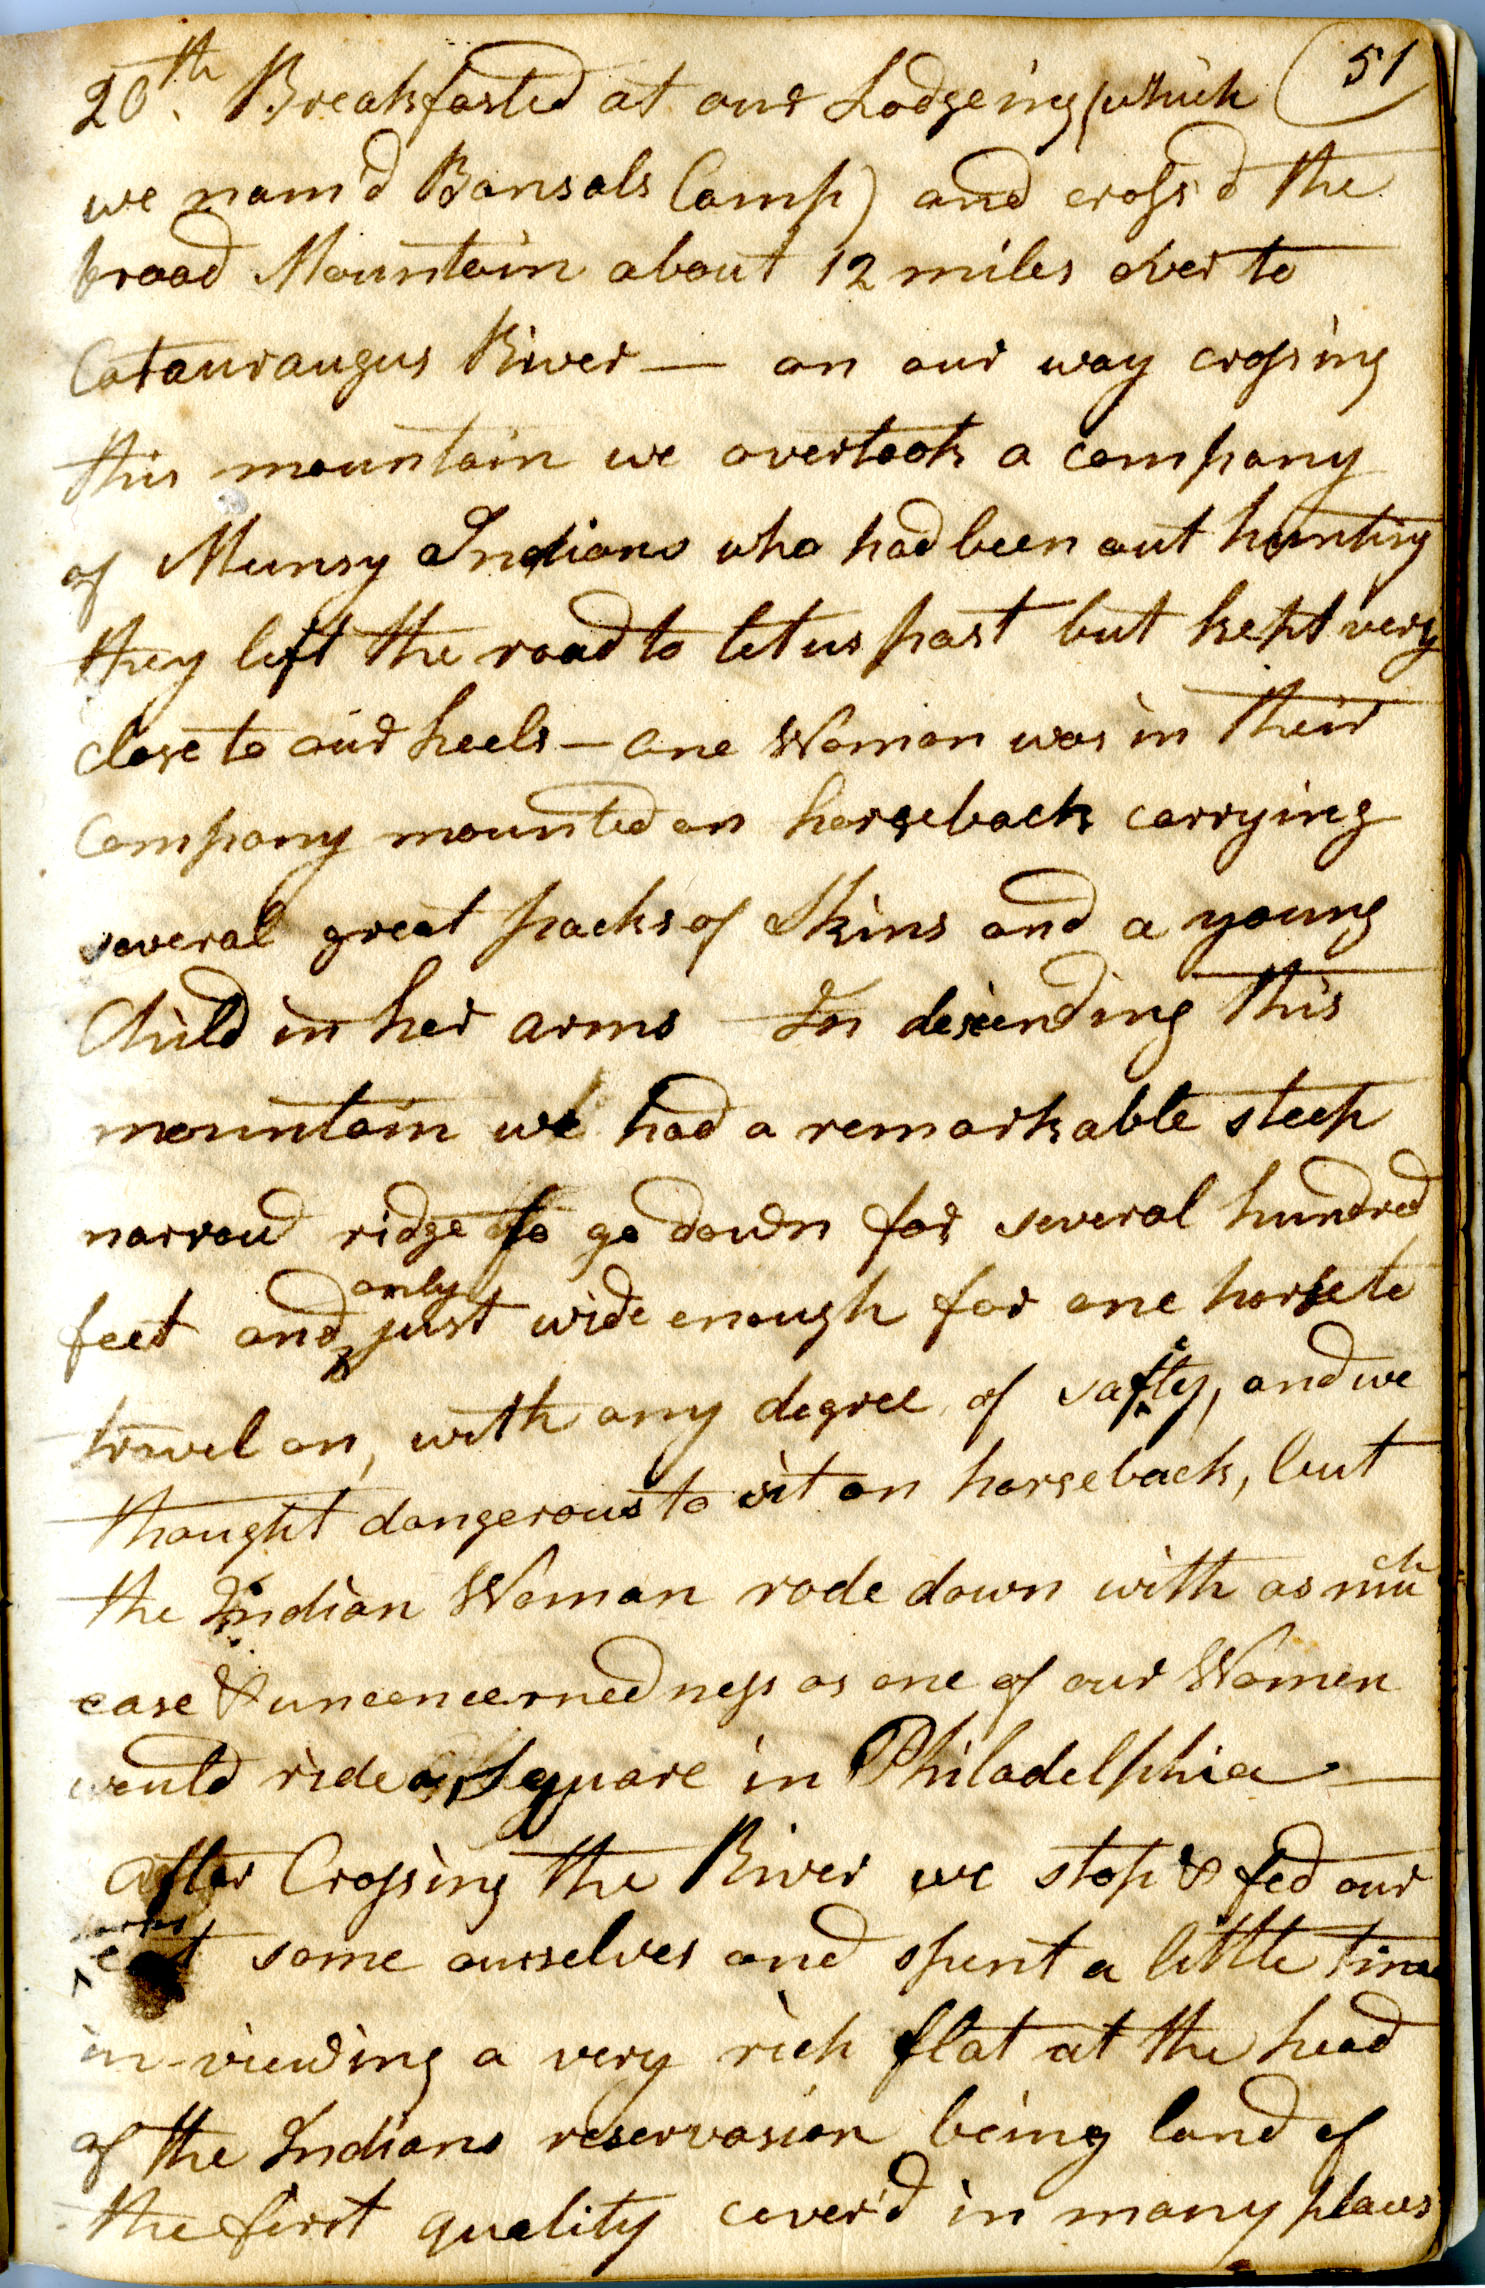 51
20th. Breakfasted at our Lodgeing (which
we nam'd Bonsals Camp) and cross'd the
broad Mountain about 12 miles over to
Cataraugus River — on our way crossing
this mountain we overtook a company
of Munsy Indians who had been out hunting
they left the road to let us past but kept very
close to our heels — one Woman was in their
Company mounted on horseback carrying
several great packs of Skins and a young
Child in her arms In desending this
mountain we had a remarkable steep
narrow ridge to go down for several hundred
feet and only just wide enough for one horse to
travel on, with any degree of safety, and we
thought dangerous to sit on horseback, but
the Indian Woman rode down with as much
ease & unconcernedness as one of our Women
would ride a Square in Philadelphia —
After Crossing the River we stop & fed our
horses eat some ourselves and spent a little time
in viewing a very rich flat at the head
of the Indians reservasion being land of
the first quality cover'd in many places